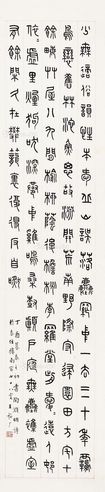 少無適俗韻性本愛丘山誤落塵網中一去三十年
羈鳥戀舊林池魚思故淵開荒南野際守拙歸園田方宅十
餘畝草屋八九間榆柳蔭後簷桃李羅堂前曖曖遠人村依
依墟里煙狗吠深巷中雞鳴桑樹顛戶庭無塵雜虛室
有餘閒久在樊籠裏復得反自然